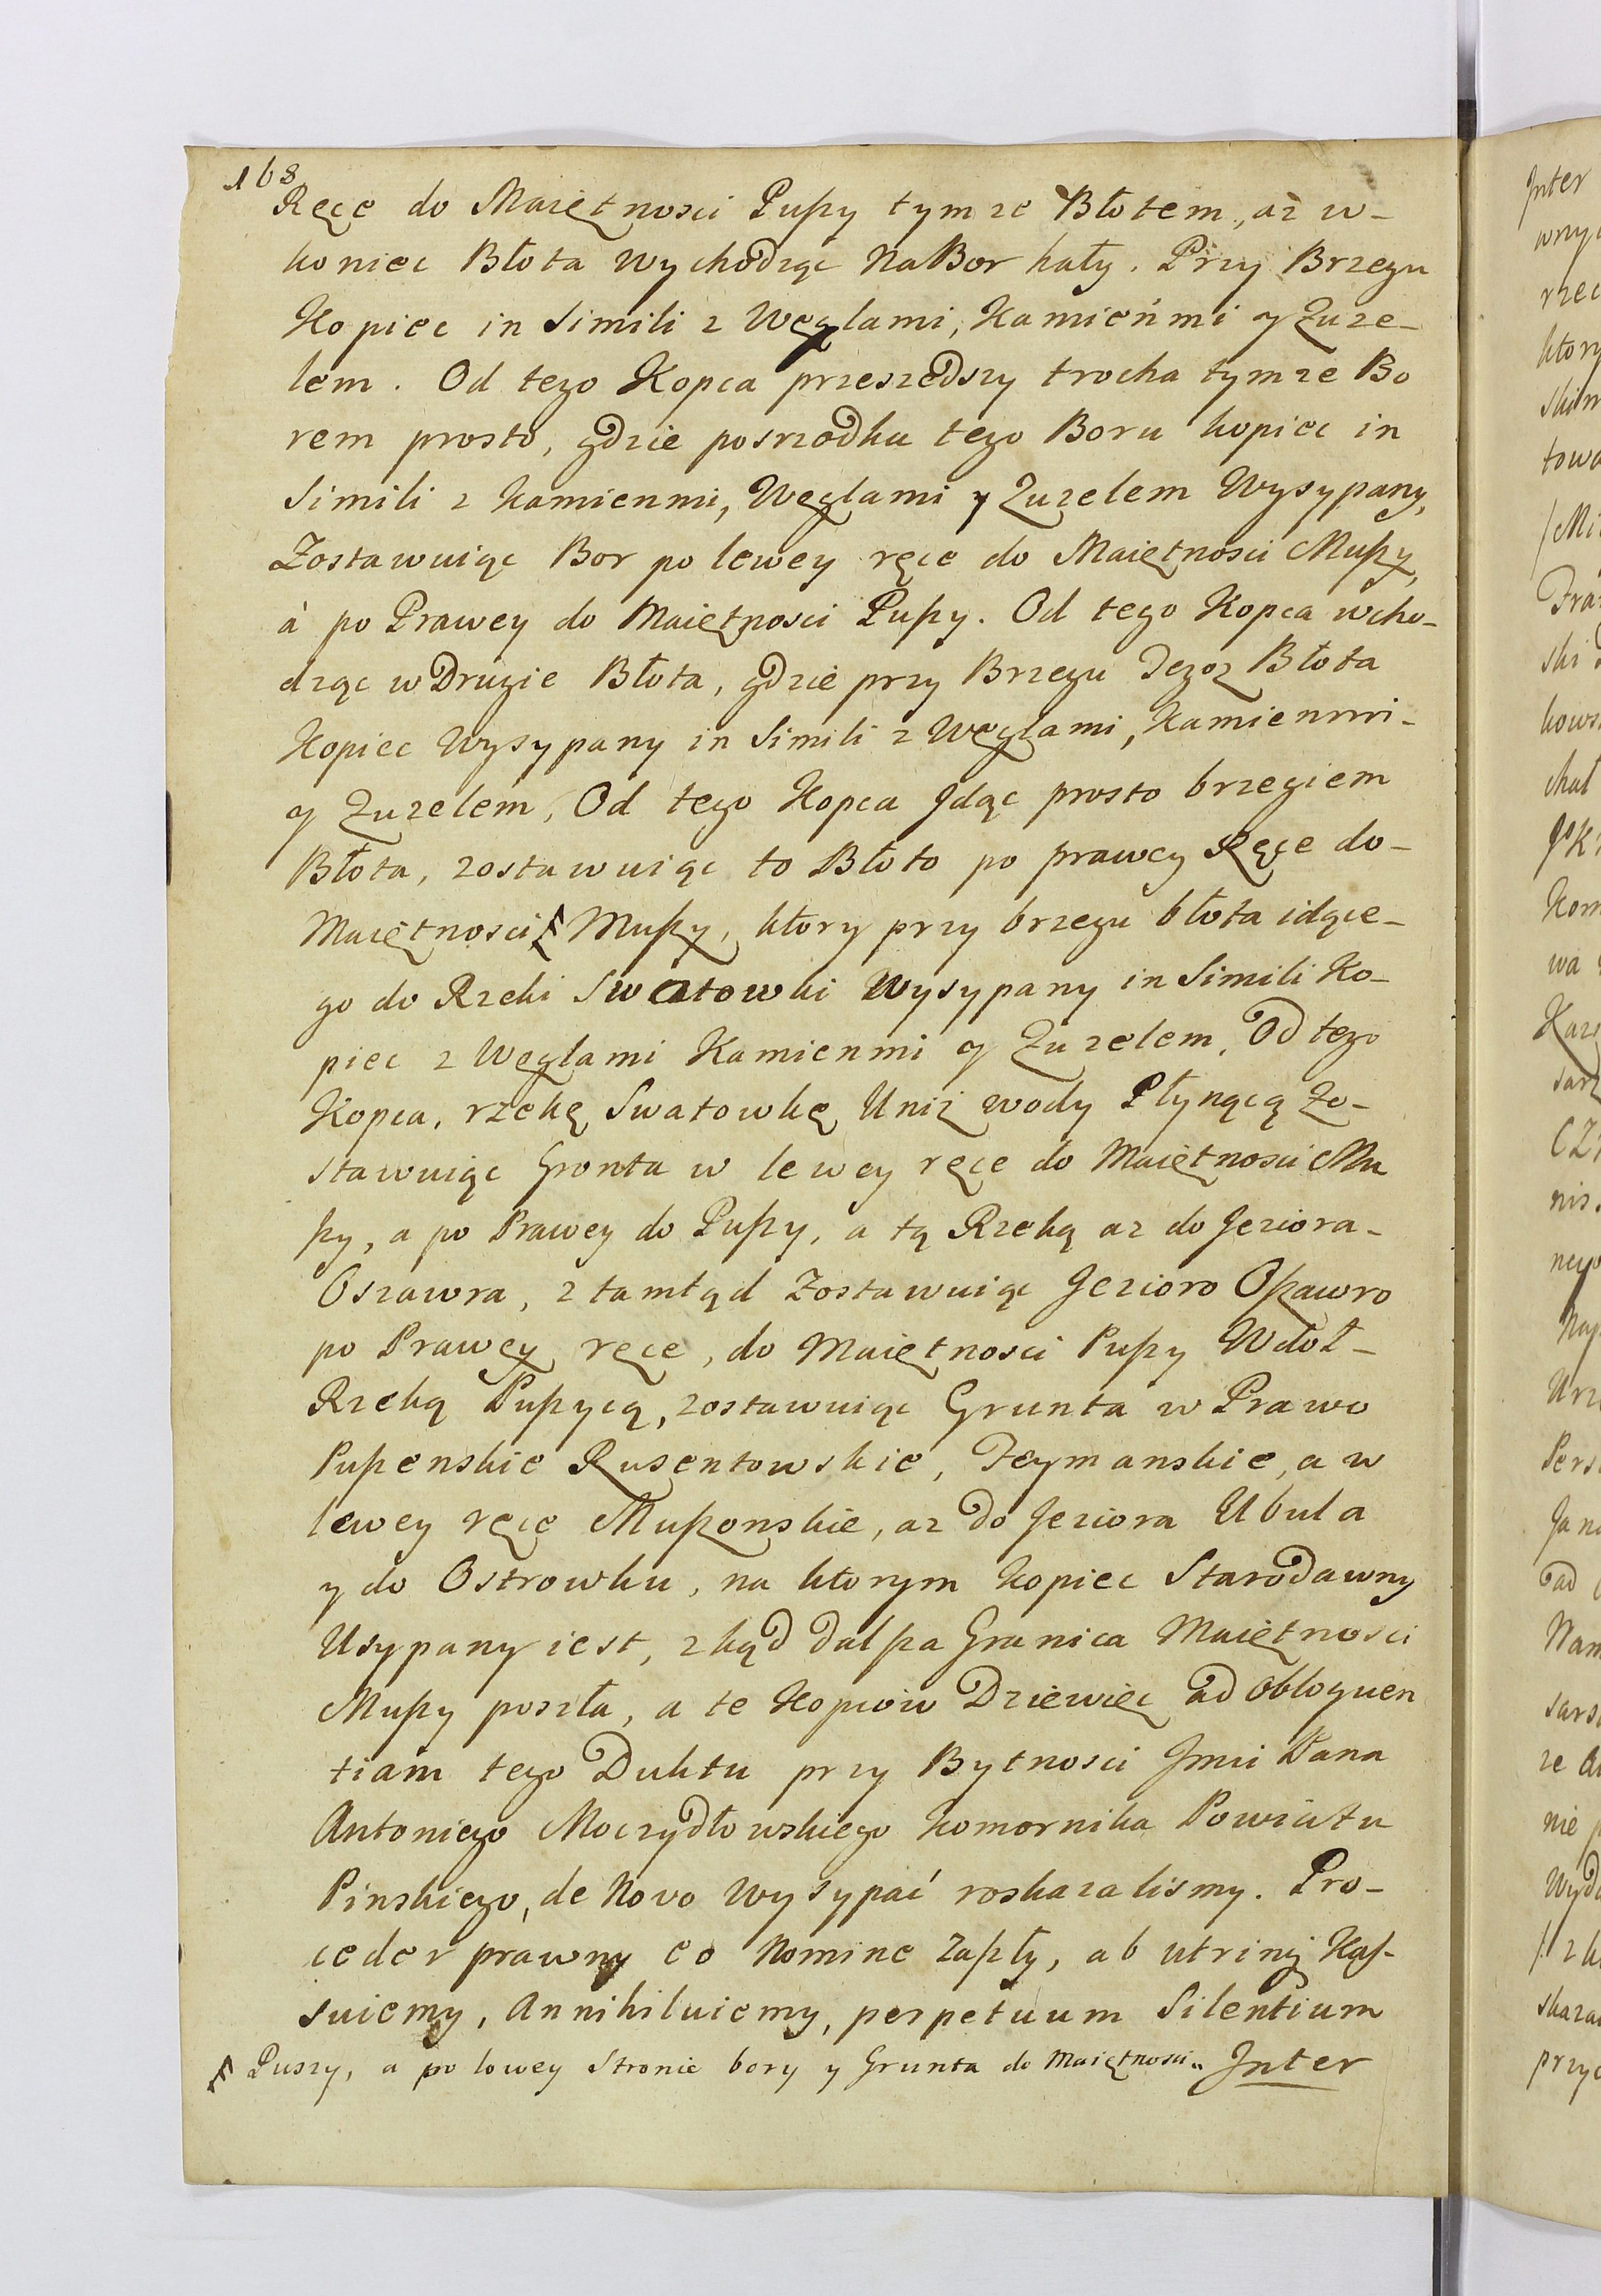 168
Ręce do Maiętnosci Pußy tymze Błotem, aż w-
koniec Błota wychodząc Na Bor hały. Przy Brzegu
Kopiec in Simili z Węglami, Kamieńmi y Zuze-
lem. Od tego Kopca przeszedszy trocha tymze Bo
rem prosto, gdzie posrzodku tego Boru kopiec in
Simili z kamienmi, Węglami y Zuzelem Wysypany,
Zostawuiąc Bor po lewey ręce do Maiętnosci Mußy,
à po Prawey do Maiętnosci Pußy. Od tego Kopca wcho-
dząc w Drugie Błota, gdzie przy Brzegu Tegoz Błota
Kopiec Wysypany in Simili z Węglami, Kamienmi-
y Zuzelem, Od tego Kopca Jdąc prosto brzegiem
Błota, zostawuiąc to Błoto po prawey Ręce do-
Maiętnosci Mußy, ktory przy brzegu błota idące-
go do Rzeki Swatowki Wysypany in Simili Ko-
piec z Węglami Kamienmi y Zuzelem, Od tego
Kopca, rzekę Swatowkę Uniz wody Płynącą Zo-
stawuiąc Gronta w lewey ręce do Maiętnosci Mu
ßy, a po Prawey do Pußy, a tą Rzeką az do Jeziora-
Oszawra, z tamtąd Zostawuiąc Jezioro Oßawro
po Prawey ręce, do Maiętnosci Pußy Wdoł-
Rzeką Pußycą, zostawuiąc Grunta w Prawo
Pußenskie Rusentowskie, Teymanskie, a w
lewey ręce Mußonskie, az do Jeziora Ubula
y do Ostrowku, na ktorym kopiec Starodawny
Usypany iest, zkąd dalßa Granica Maiętnosci
Mußy poszła, a te Kopców Dziewięć ad obloquen
tiam tego Duktu przy Bytnosci Jmci Pana
Antoniego Moczydłowskiego Komornika Powiatu
Pinskiego, de Novo Wysypać roskazalismy. Pro-
ceder prawny eo Nomine Zaßły, ab utrinq Kaß-
suiemy, Annihiluiemy, perpetuum Silentium
Puszy, a po lewey Stronie bory y Grunta do Maiętnosci„ Jnter